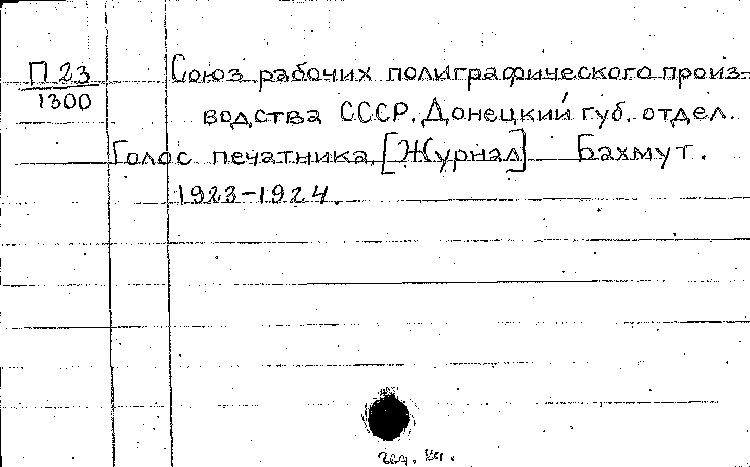 П 23
1300
Союз рабочих полиграфического произ-
водства СССР. Донецкий губ. отдел.
Голос печатника. [Журнал] Бахмут.
1923-1924.